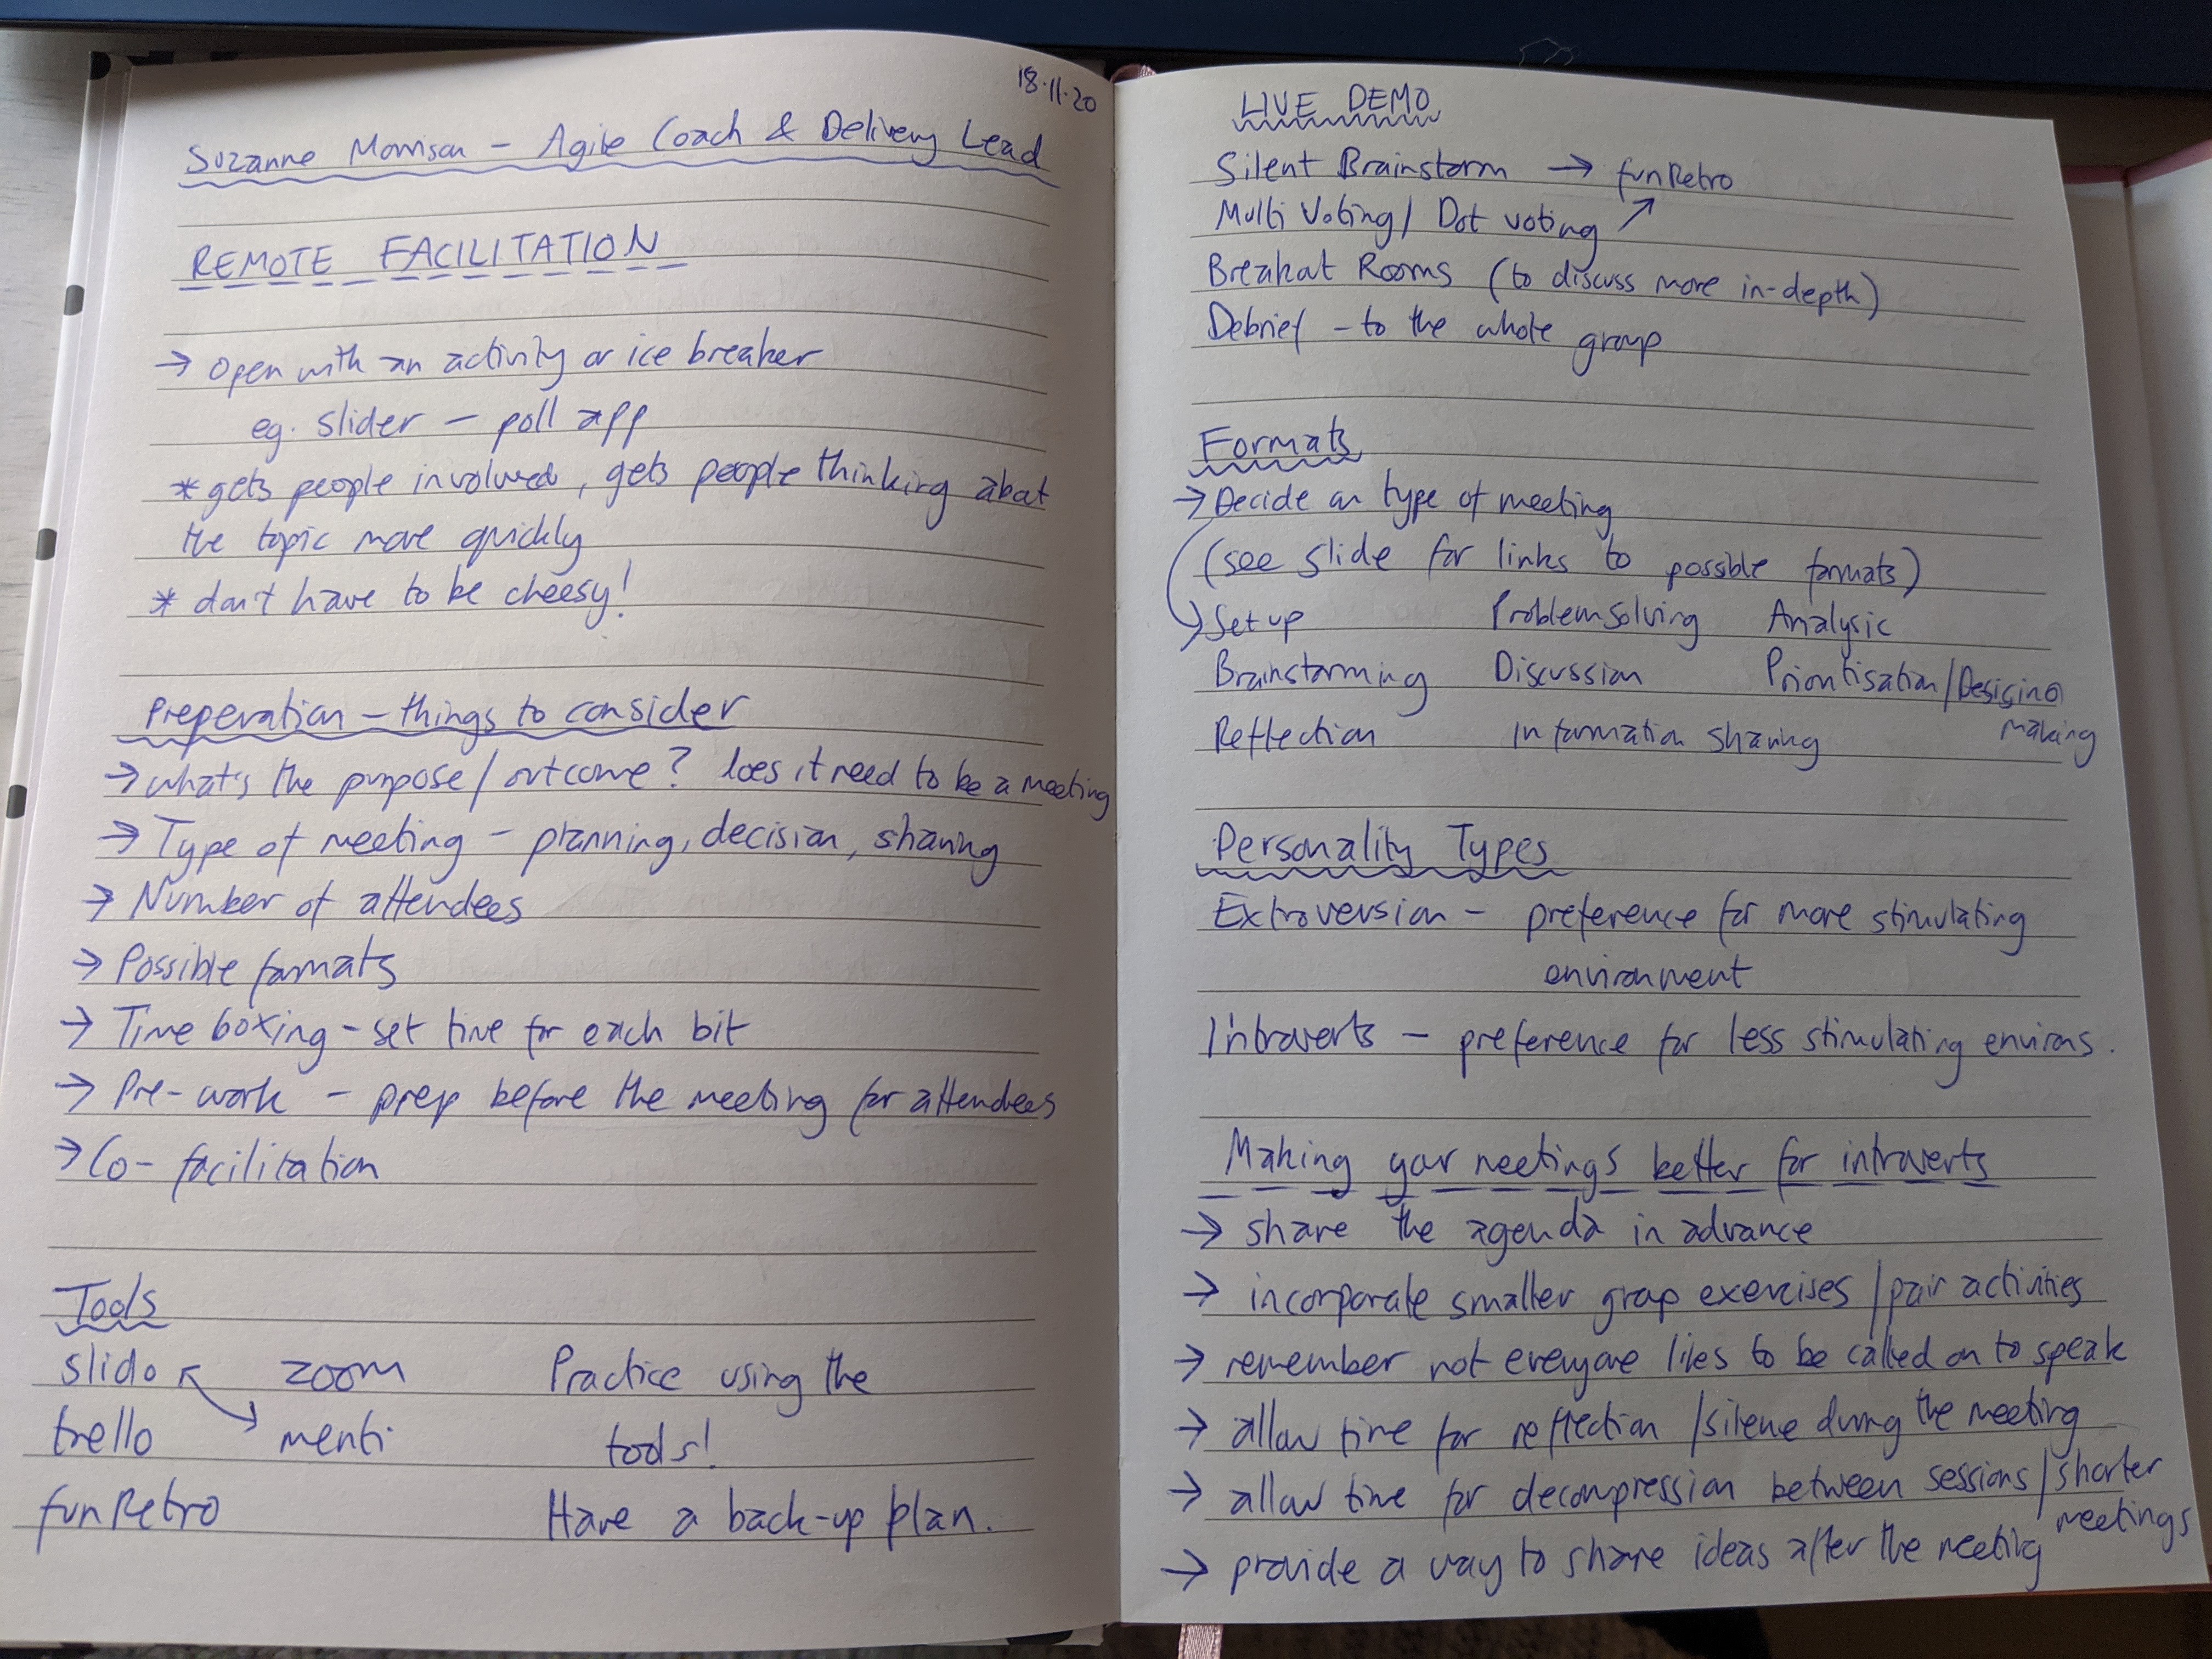 18.11.20
Suzanne Morrison - Agile Coach & Delivery Lead
REMOTE FACILITATION
→ Open with an activity or ice breaker
eg. slider - poll app
* gets people involved, gets people thinking about
the topic more quickly
* don't have to be cheesy!
Preperation - things to consider
→ what's the purpose/outcome? does it need to be a meeting
→ Type of meeting - planning, decision, sharing
→ Number of attendees
→ Possible formats
→ Time boxing - set time for each bit
→ Pre-work - prep before the meeting for attendees
→ Co-facilitation
Tools
slido zoom Practice using the
trello menti tools!
funRetro Have a back-up plan.
LIVE DEMO
Silent Brainstorm → funRetro
Multi Voting/ Dot voting ↗
Breakout Rooms (to discuss more in-depth)
Debrief - to the whole group
Formats
→ Decide on type of meeting
(see slide for links to possible formats)
→ Set up Problem solving Analysic
Brainstorming Discussion Prioritisation/Desicino
making
Reflection Information sharing
Personality Types
Extroversion - preference for more stimulating
environment
Introverts - preference for less stimulating environs.
Making your meetings better for introverts
→ share the agenda in advance
→ incorporate smaller group exercises /pair activities
→ remember not everyone likes to be called on to speak
→ allow time for reflection /silence during the meeting
→ allow time for decompression between sessions/shorter
meetings
→ provide a way to share ideas after the meeting